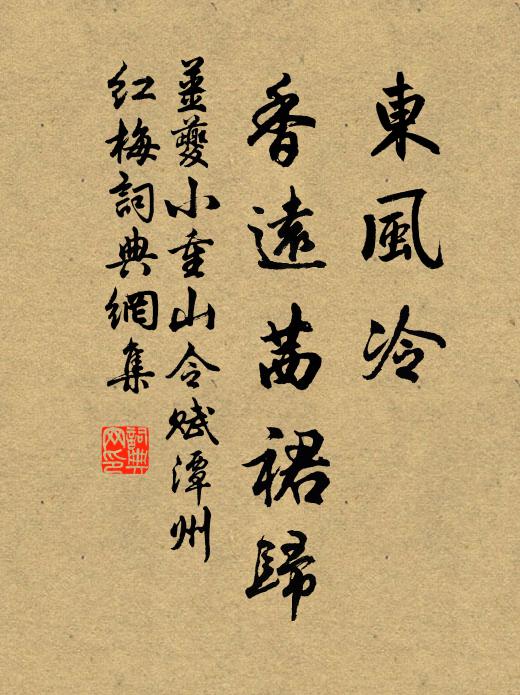 東風冷
香遠茜裙歸
姜夔小重山令賦潭州
紅梅詞典網集
詞典
网印